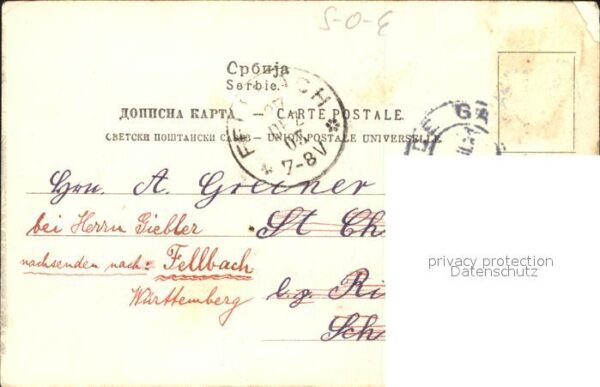 S-O-E
Србија
Serbie.
ДОПИСНА КАРТА. — CARTE POSTALE.
СВЕТСКИ ПОШТАНСКИ САВЕЗ — UNION POSTALE UNIVERSELLE
FELLBACH
27
DEZ
03
7-8V
GA
Hrn. A. Greiner
bei Herrn Giebler St Ch
nachsenden nach: Fellbach
Württemberg b. Ri
Sch
privacy protection
Datenschutz